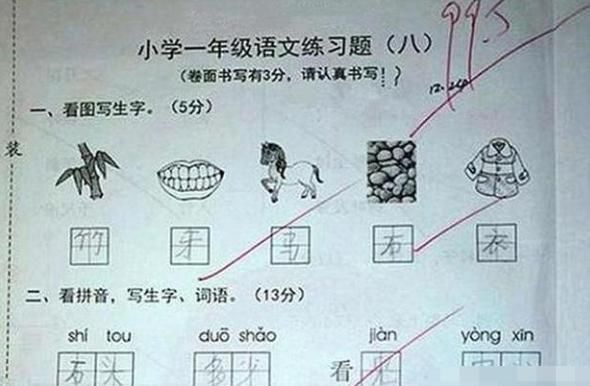 小学一年级语文练习题（八）
99.5
（卷面书写有3分，请认真书写！）
装
一、看图写生字。（5分）
竹 牙 马 石 衣
二、看拼音，写生字、词语。（13分）
shí tou duō shǎo jiàn yòng xīn
石头 多少 看见 用心